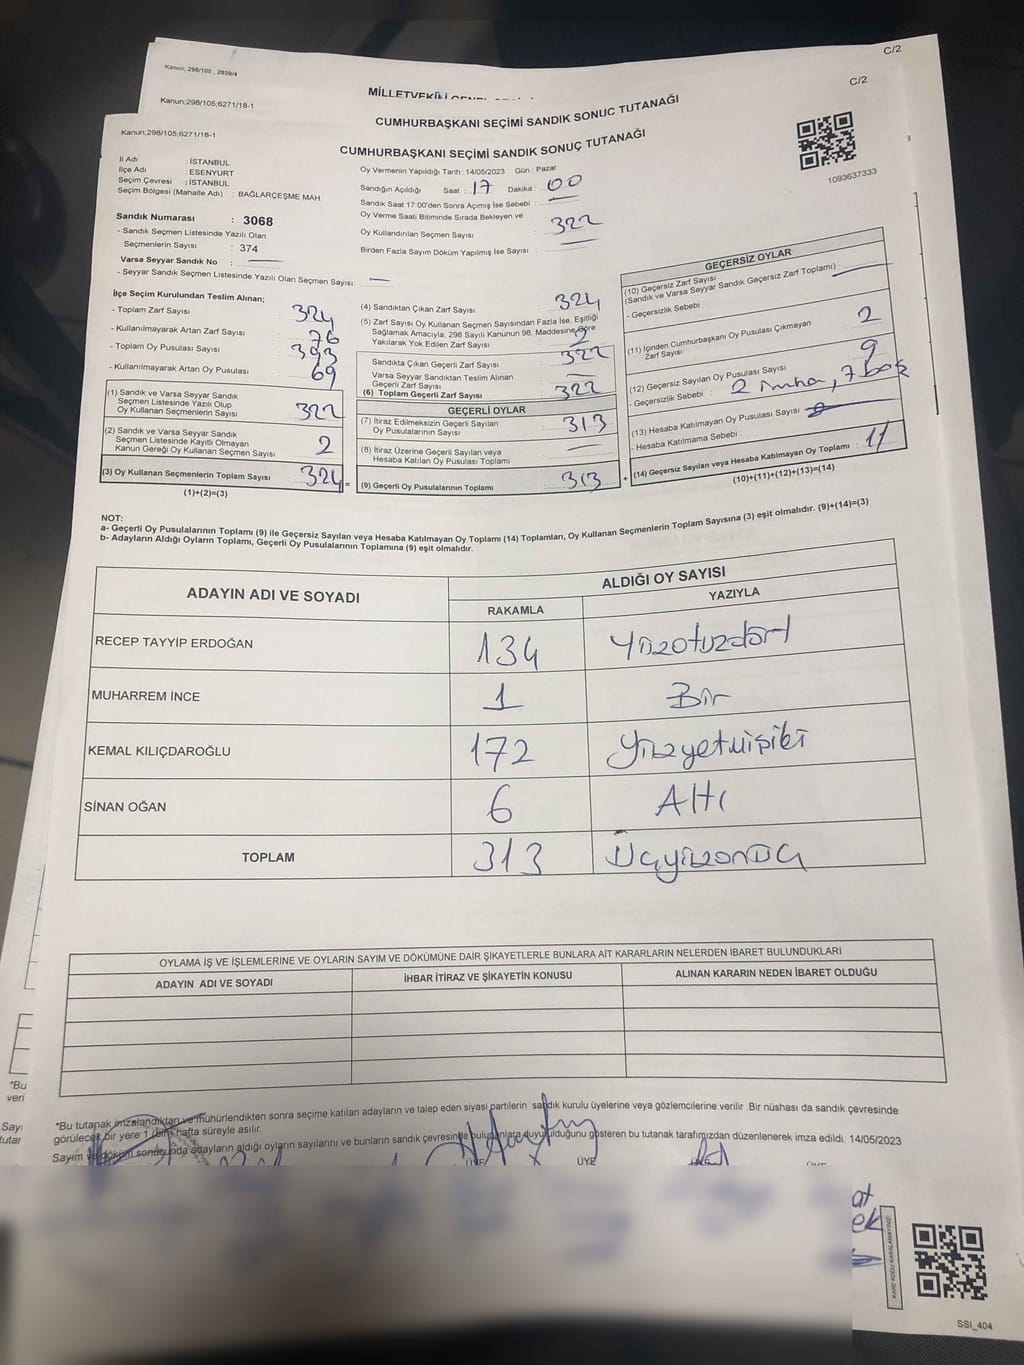 C/2
Kanun; 298/105 , 2839/4
C/2
Kanun;298/105;6271/18-1
CUMHURBAŞKANI SEÇİMİ SANDIK SONUC TUTANAĞI
Kanun;298/105;6271/18-1
CUMHURBAŞKANI SEÇİMİ SANDIK SONUÇ TUTANAĞI
1093637333
İl Adı : İSTANBUL
İlçe Adı : ESENYURT
Seçim Çevresi : İSTANBUL
Seçim Bölgesi (Mahalle Adı) : BAĞLARÇEŞME MAH
Oy Vermenin Yapıldığı Tarih :14/05/2023 Gün : Pazar
Sandığın Açıldığı Saat : 17 Dakika : 00
Sandık Saat 17:00'den Sonra Açımış İse Sebebi :
Oy Verme Saati Bitiminde Sırada Bekleyen ve
Oy Kullandırılan Seçmen Sayısı : 322
Birden Fazla Sayım Döküm Yapılmış İse Sayısı :
Sandık Numarası : 3068
- Sandık Seçmen Listesinde Yazılı Olan
Seçmenlerin Sayısı : 374
Varsa Seyyar Sandık No :
- Seyyar Sandık Seçmen Listesinde Yazılı Olan Seçmen Sayısı:
İlçe Seçim Kurulundan Teslim Alınan;
- Toplam Zarf Sayısı 324
- Kullanılmayarak Artan Zarf Sayısı 76
- Toplam Oy Pusulası Sayısı 393
- Kullanılmayarak Artan Oy Pusulası 69
(1) Sandık ve Varsa Seyyar Sandık
Seçmen Listesinde Yazılı Olup
Oy Kullanan Seçmenlerin Sayısı 322
(2) Sandık ve Varsa Seyyar Sandık
Seçmen Listesinde Kayıtlı Olmayan
Kanun Gereği Oy Kullanan Seçmen Sayısı 2
(3) Oy Kullanan Seçmenlerin Toplam Sayısı 324 =
(1)+(2)=(3)
(4) Sandıktan Çıkan Zarf Sayısı 324
(5) Zarf Sayısı Oy Kullanan Seçmen Sayısından Fazla İse, Eşitliği
Sağlamak Amacıyla; 298 Sayılı Kanunun 98. Maddesine Göre
Yakılarak Yok Edilen Zarf Sayısı 2
Sandıkta Çıkan Geçerli Zarf Sayısı 322
Varsa Seyyar Sandıktan Teslim Alınan
Geçerli Zarf Sayısı
(6) Toplam Geçerli Zarf Sayısı 322
GEÇERLİ OYLAR
(7) İtiraz Edilmeksizin Geçerli Sayılan
Oy Pusulalarının Sayısı 313
(8) İtiraz Üzerine Geçerli Sayılan veya
Hesaba Katılan Oy Pusulası Toplamı
(9) Geçerli Oy Pusulalarının Toplamı 313 +
GEÇERSİZ OYLAR
(10) Geçersiz Zarf Sayısı
(Sandık ve Varsa Seyyar Sandık Geçersiz Zarf Toplamı)
- Geçersizlik Sebebi :
(11) İçinden Cumhurbaşkanı Oy Pusulası Çıkmayan
Zarf Sayısı 2
(12) Geçersiz Sayılan Oy Pusulası Sayısı 9
- Geçersizlik Sebebi : 2 imha, 7 boş
(13) Hesaba Katılmayan Oy Pusulası Sayısı
- Hesaba Katılmama Sebebi :
(14) Geçersiz Sayılan veya Hesaba Katılmayan Oy Toplamı : 11
(10)+(11)+(12)+(13)=(14)
NOT:
a- Geçerli Oy Pusulalarının Toplamı (9) ile Geçersiz Sayılan veya Hesaba Katılmayan Oy Toplamı (14) Toplamları, Oy Kullanan Seçmenlerin Toplam Sayısına (3) eşit olmalıdır. (9)+(14)=(3)
b- Adayların Aldığı Oyların Toplamı, Geçerli Oy Pusulalarının Toplamına (9) eşit olmalıdır.
ADAYIN ADI VE SOYADI ALDIĞI OY SAYISI
RAKAMLA YAZIYLA
RECEP TAYYİP ERDOĞAN 134 Yüzotuzdört
MUHARREM İNCE 1 Bir
KEMAL KILIÇDAROĞLU 172 Yüzyetmişiki
SİNAN OĞAN 6 Altı
TOPLAM 313 Üçyüzonüç
OYLAMA İŞ VE İŞLEMLERİNE VE OYLARIN SAYIM VE DÖKÜMÜNE DAİR ŞİKAYETLERLE BUNLARA AİT KARARLARIN NELERDEN İBARET BULUNDUKLARI
ADAYIN ADI VE SOYADI İHBAR İTİRAZ VE ŞİKAYETİN KONUSU ALINAN KARARIN NEDEN İBARET OLDUĞU
*Bu tutanak imzalandıktan ve mühürlendikten sonra seçime katılan adayların ve talep eden siyasi partilerin sandık kurulu üyelerine veya gözlemcilerine verilir .Bir nüshası da sandık çevresinde
görülecek bir yere 1 (bir) hafta süreyle asılır.
Sayım ve döküm sonucunda adayların aldığı oyların sayılarını ve bunların sandık çevresinde bulunanlara duyurulduğunu gösteren bu tutanak tarafımızdan düzenlenerek imza edildi. 14/05/2023
ÜYE
KARE KODU KARALAMAYINIZ!
SSI_404